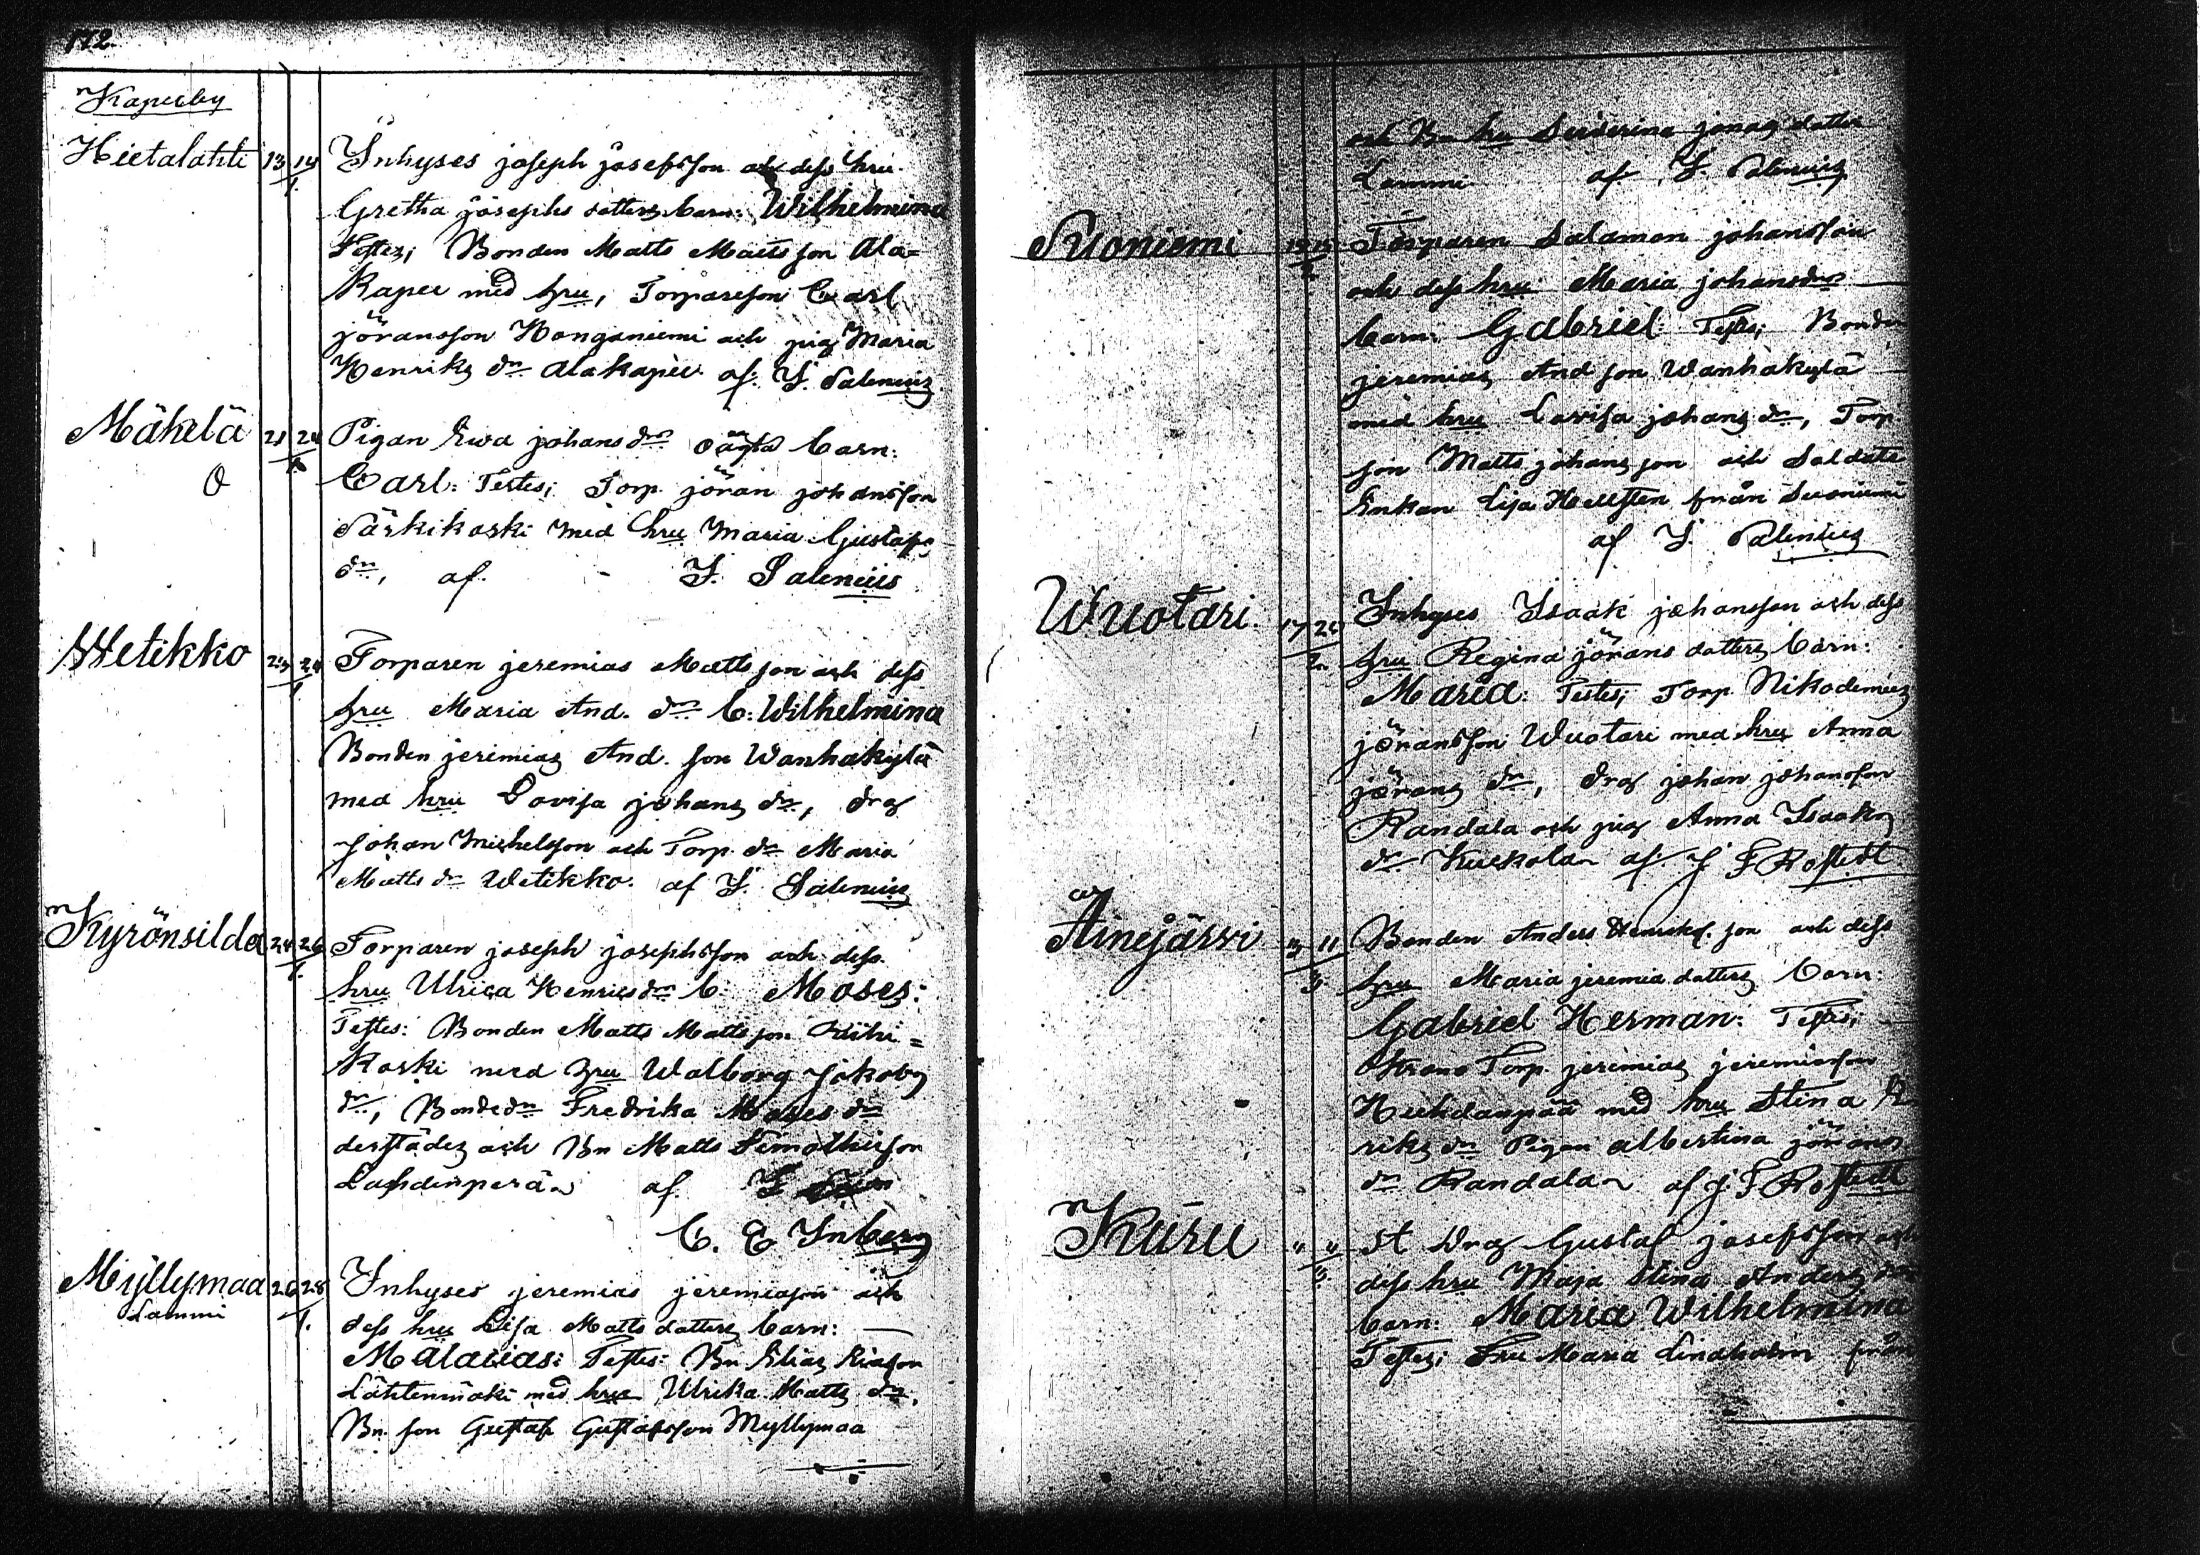 172.
Kapeeby
Hietalahti 13 14 Inhyses joseph josefsson och dess hru
1. Gretha josephs dotters barn: Wilhelmina
Testes; Bonden Matts Mattsson Ala=
Kapee med hru, Torpareson Carl
jöransson Honganiemi och pig Maria
Henriks dr Alakapee af I. Salenius
Mäkelä 21 24 Pigan Ewa johans dr oägta barn:
O 1 Carl: Testes; Torp. jöran johansson
Särkikoski med hru Maria Gustafs
dr, af. I. Salenius
Wetikko 23 24 Torparen jeremias Mattsson och dess
1 hru Maria And. dr b: Wilhelmina
Bonden jeremias And. son Wanhakylä
med hru Lovisa johans dr, drg
Johan Michelsson och Torp. dr Maria
Matts dr Wetikko. af I. Salenius
Kyrönsilda 24 26 Torparen joseph josephsson och dess
1. hru Ulrica Henricsdr b: Moses:
Testes: Bonden Matts Mattsson
Koski med hru Walborg Jakobs
dr, Bondedr Fredrika Moses dr
derstädes och Bn Matts Timotheisson
Lahdinperä af I
C. E Inberg
Myllymaa 26 28 Inhyses jeremias jeremiason och
Lammi 1. dess hru Lisa Matts dotters barn:
Malakias: Testes: Bn Elias Eliason
Lähtenmäki med hru Ulrika Matts dr,
Bn son Gustaf Gustafsson Myllymaa
och Bn hru Severina jonas dotter
Lammi af I. Salenius
Suoniemi 15 Torparen Salamon johansson
2 och dess hru Maria johansdr
barn: Gabriel: Testes; Bonden
jeremias And son Wanhakylä
med hru Lovisa johans dr, Torp
son Matts johansson och Soldats
Enkan Lisa Hellsten från Suoniemi
af I. Salenius
Wuotari 17 20 Inhyses Isaak johansson och dess
2. hru Regina jörans dotters barn:
Maria: Testes; Torp. Nikodemus
jöransson Wuotari med hru Anna
jörans dr, drg johan johansson
Randala och pig Anna Isaaks
dr Kuckola af J F Rostedt
Äinejärvi 11 Bonden Anders Henriks. son och dess
3. hru Maria jeremia dotters barn:
Gabriel Herman: Testes;
Strans Torp. jeremias jeremiasson
Huhdanpää med hru Stina
riks dr Pigan Albertina jörans
dr Randala af J F Rostedt
Kuru " " St Drg Gustaf josefsson och
3. dess hru Maja Stina Anders dr
barn: Maria Wilhelmina
Testes; Fru Maria Lindholm från
KODAK SAFETY